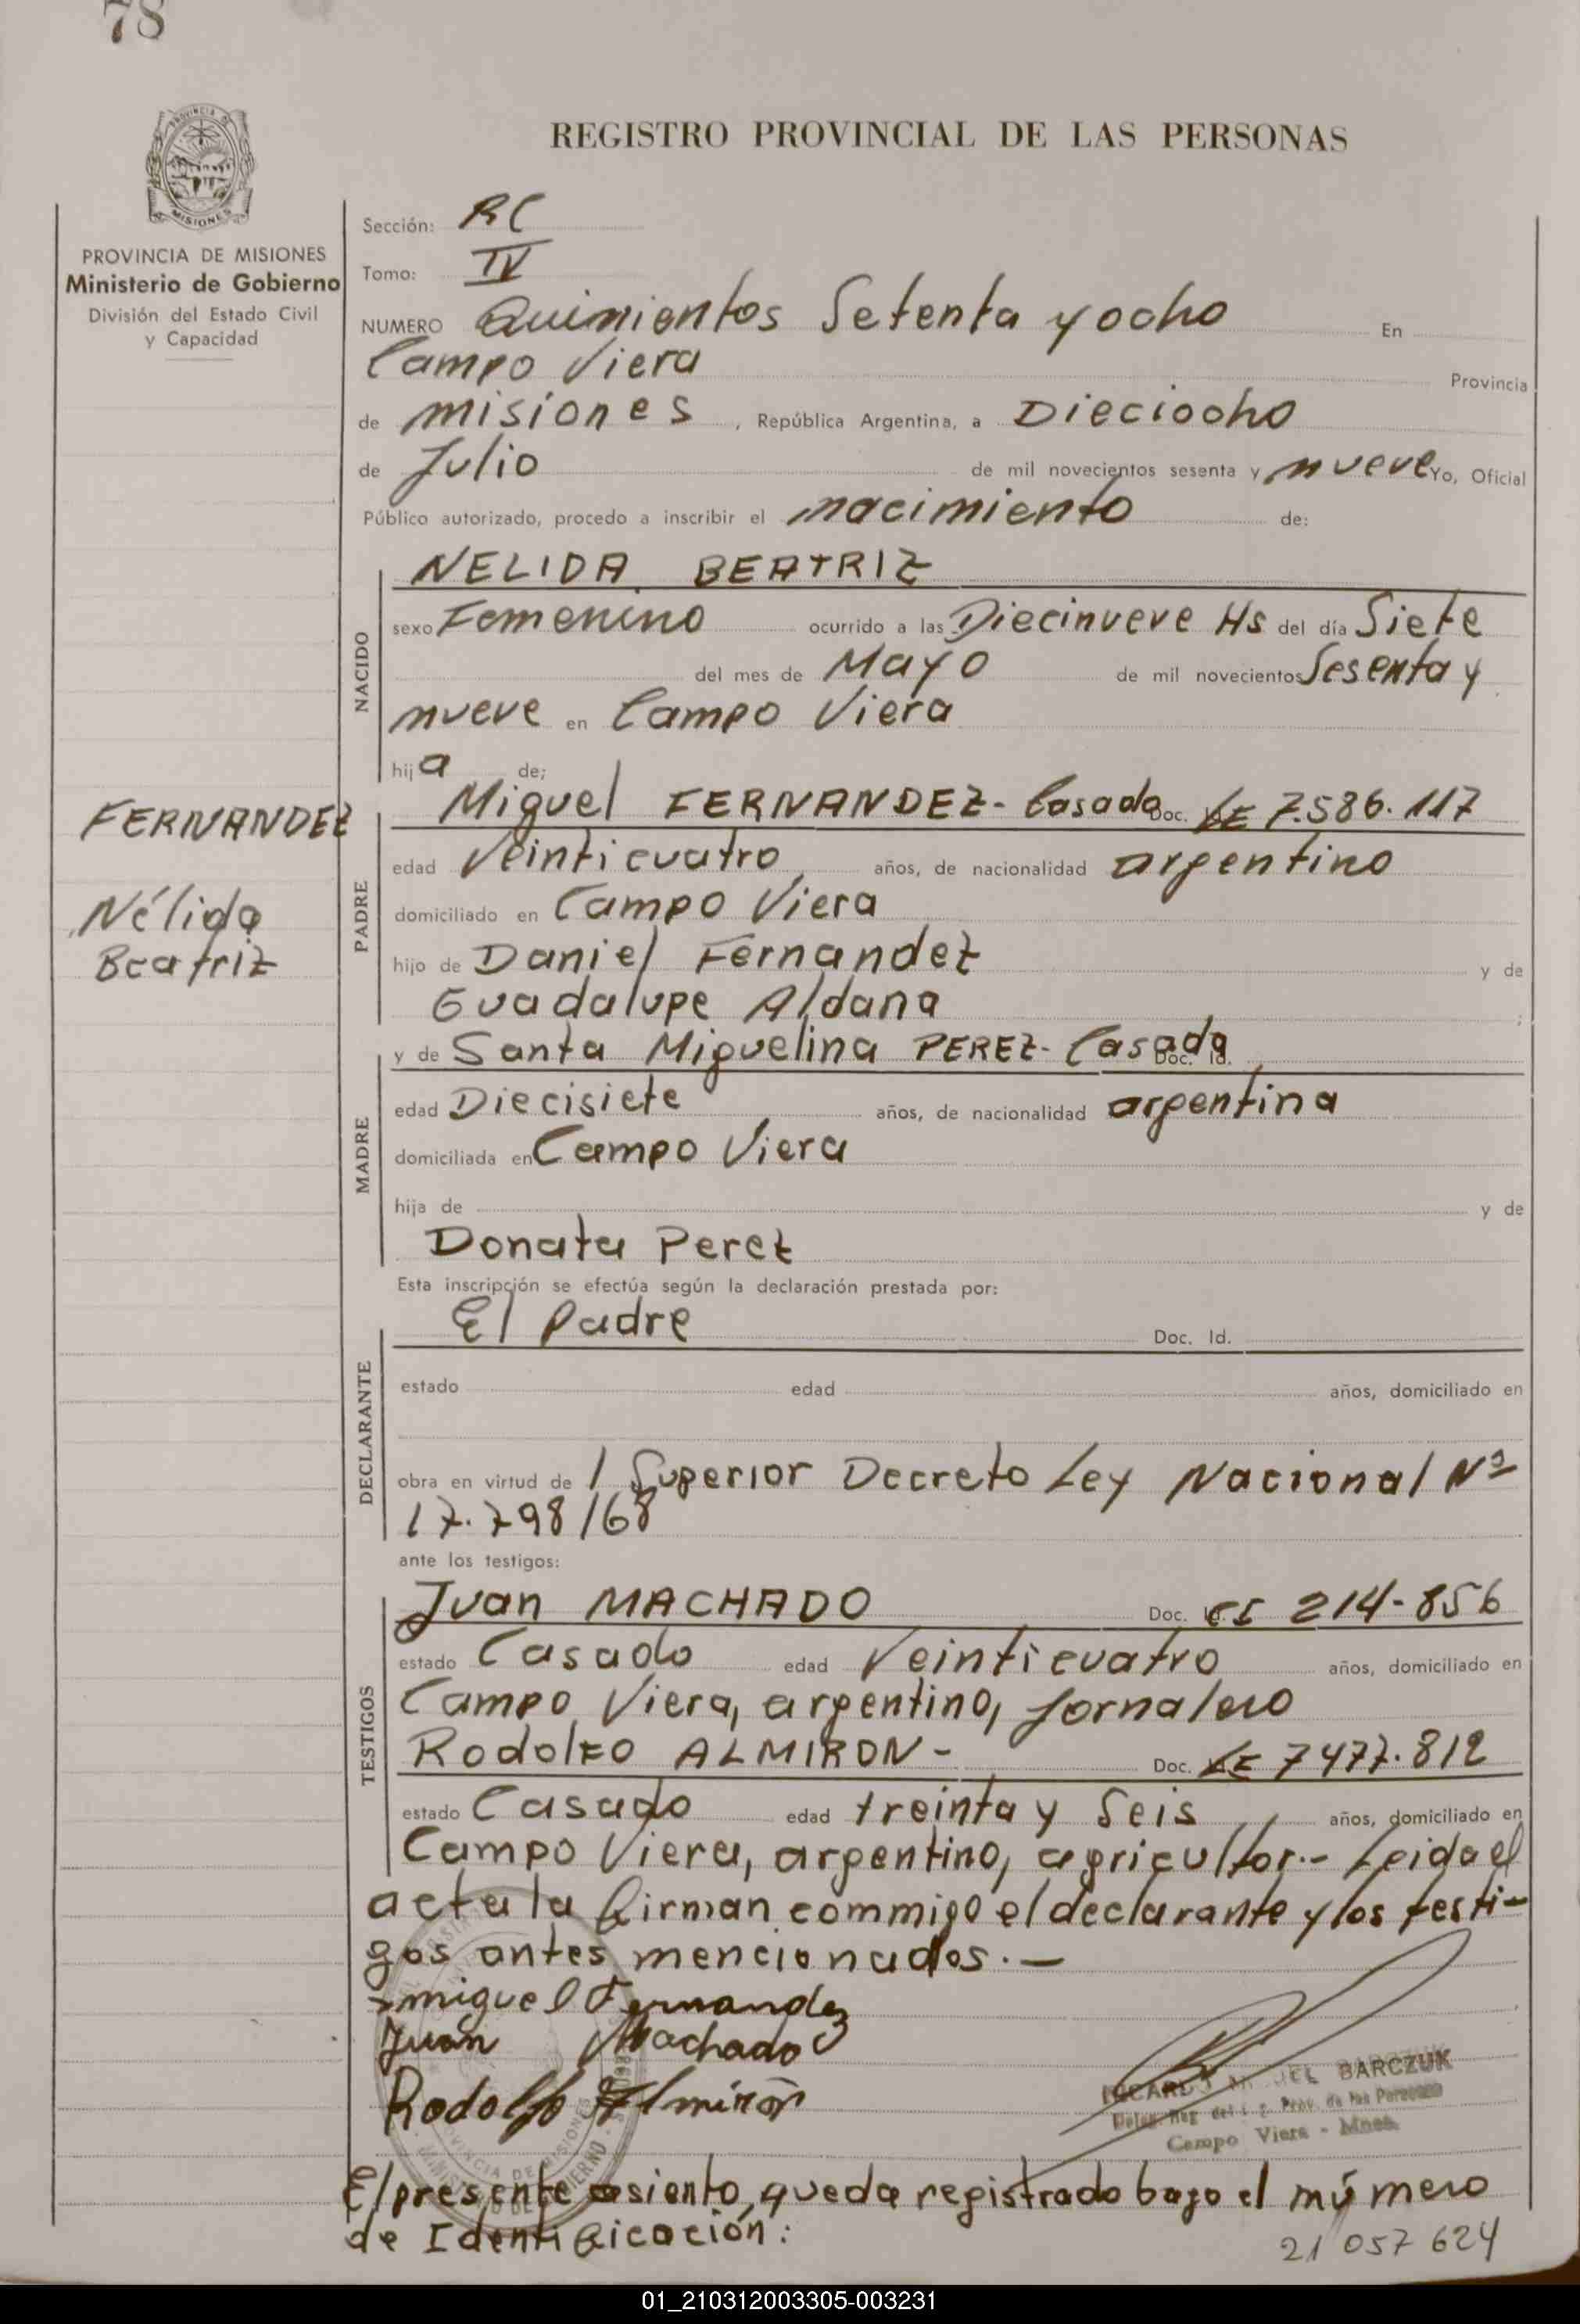 78
REGISTRO PROVINCIAL DE LAS PERSONAS
PROVINCIA DE MISIONES
Ministerio de Gobierno
División del Estado Civil
y Capacidad
Sección: RC
Tomo: IV
NUMERO Quinientos Setenta y ocho En
Campo Viera Provincia
de misiones, República Argentina, a Dieciocho
de Julio de mil novecientos sesenta y nueve Yo, Oficial
Público autorizado, procedo a inscribir el nacimiento de:
NACIDO
NELIDA BEATRIZ
sexo Femenino ocurrido a las Diecinueve Hs del día Siete
del mes de Mayo de mil novecientos Sesenta y
nueve en Campo Viera
hija de;
FERNANDEZ
Nélida
Beatriz
PADRE
Miguel FERNANDEZ- Casado Doc. LE 7.586.117
edad Veinticuatro años, de nacionalidad argentino
domiciliado en Campo Viera
hijo de Daniel Fernandez y de
Guadalupe Aldana ;
MADRE
y de Santa Miguelina PEREZ- Casada Doc. Id.
edad Diecisiete años, de nacionalidad argentina
domiciliada en Campo Viera
hija de y de
Donata Perez
Esta inscripción se efectúa según la declaración prestada por:
DECLARANTE
El Padre Doc. Id.
estado edad años, domiciliado en
obra en virtud de l Superior Decreto Ley Nacional Nº
17.798/68
ante los testigos:
TESTIGOS
Juan MACHADO Doc. Id. CI 214-856
estado Casado edad Veinticuatro años, domiciliado en
Campo Viera, argentino, Jornalero
Rodolfo ALMIRON- Doc. LE 7477.812
estado Casado edad treinta y Seis años, domiciliado en
Campo Viera, argentino, agricultor.- Leida el
acta la firman commigo el declarante y los testi-
gos antes mencionados.-
miguel Fernandez
Juan Machado
Rodolfo Almirón
RICARDO BARCZUK
Prov. de las Personas
Campo Viera - Mnes.
El presente asiento, queda registrado bajo el número
de Identificación:
21 057 624
01_210312003305-003231